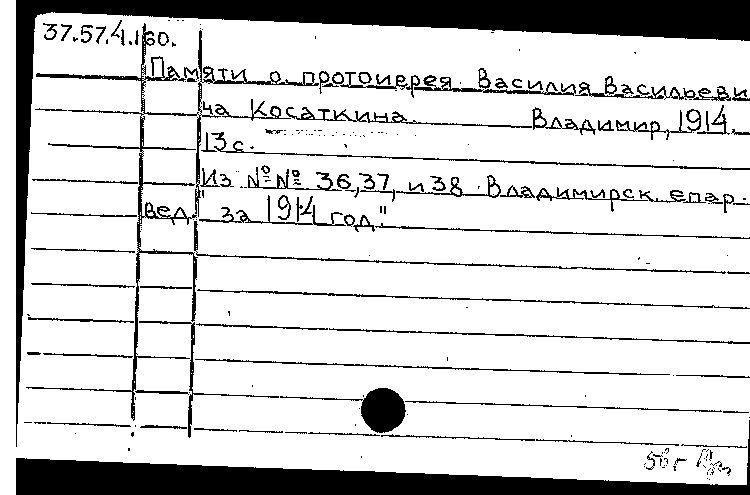 37.57.4.160.
Памяти о. протоиерея Василия Васильеви
ча Косаткина. Владимир, 1914.
13 с.
Из №№ 36,37, и 38 Владимирск. епар.
вед." за 1914 год."
56 г